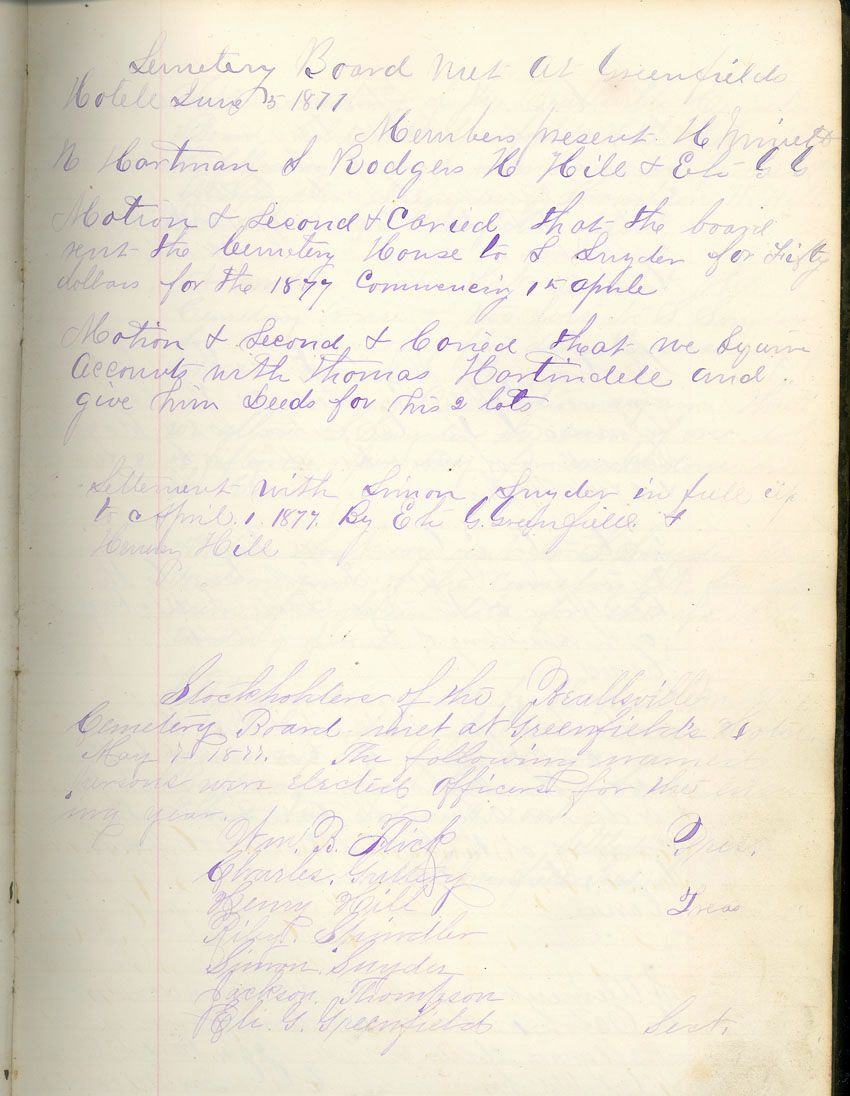 Cemetery Board met at Greenfields
Hotell June 5 1877
Members present H
N Hartman S Rodgers H Hill & Eli G G
Motion & Second & Caried that the board
rent the Cemetery House to S Snyder for Fifty
dollars for the 1877 Commencing 1st aprile
Motion & Second & Caried that we Squire
Accounts with Thomas Hartindele and
give him Deeds for his 2 lots
Settlement with Simon Snyder in full
to April. 1. 1877. By Eli G. Greenfield &
Henry Hill
Stockholders of the Beallsville
Cemetery Board met at Greenfield's Hotel
May 7 1877. The following named
persons were elected officers for the en
ing year.
Wm. B. Flick Pres.
Charles. Guttery
Henry Hill Trea
Shindler
Simon Snyder
Jackson Thompson
Eli. G. Greenfield Sect.